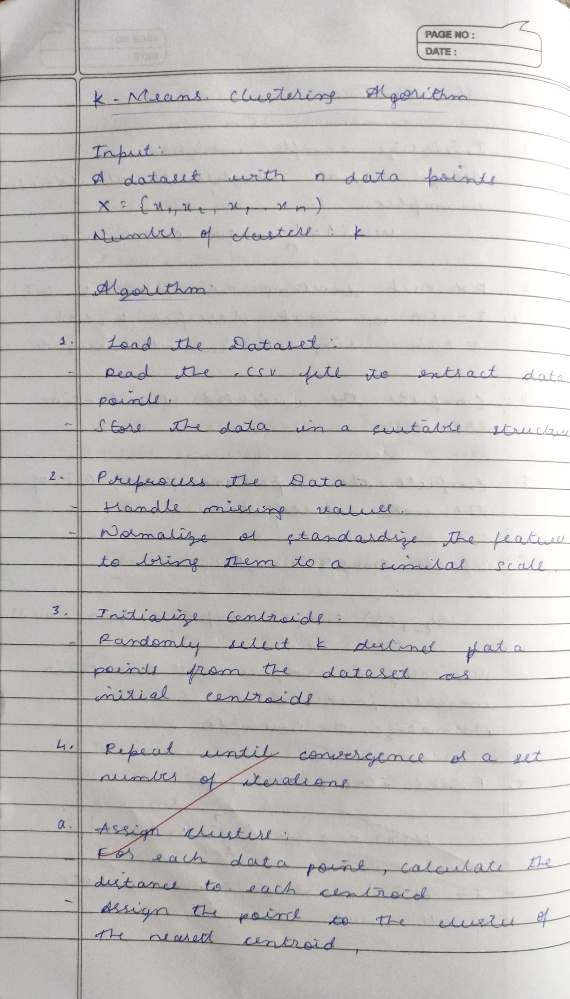 PAGE NO :
DATE :
K - Means Clustering Algorithm
Input:
A dataset with n data points
X = {x1, x2, x, .. xn)
Number of clusters : k
Algorithm:
1. Load the Dataset :
- Read the .CSV file to extract data
points.
- Store the data in a suitable structure
2. Preprocess the Data
- Handle missing values.
- Normalize or standardize the feature
to bring them to a similar scale.
3. Initialize Centroids :
- Randomly select k distinct data
points from the dataset as
initial centroids
4. Repeat until convergence or a set
number of iterations
a. Assign clusters :
- For each data point, calculate the
distance to each centroid
- Assign the point to the cluster of
the nearest centroid,